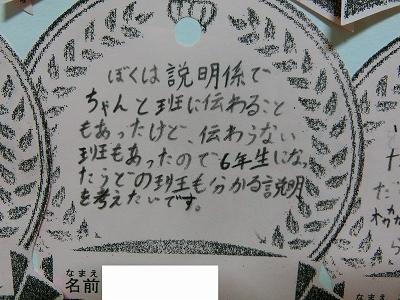 ぼくは説明係で
ちゃんと班に伝わること
もあったけど、伝わらない
班もあったので6年生になっ
たらどの班も分かる説明
を考えたいです。
なまえ
名前